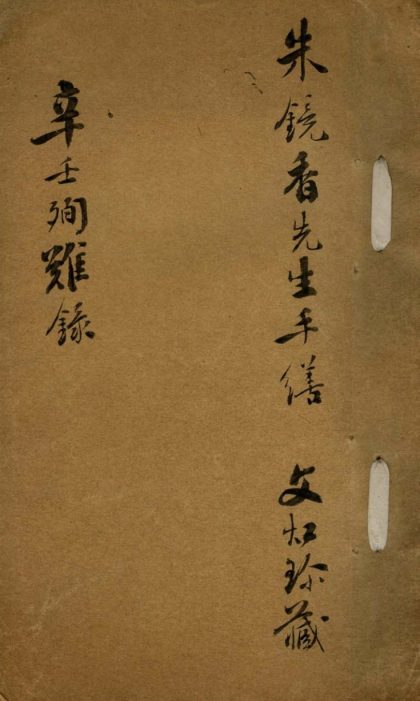 朱鏡香先生手繕 文珍藏
辛壬殉難錄